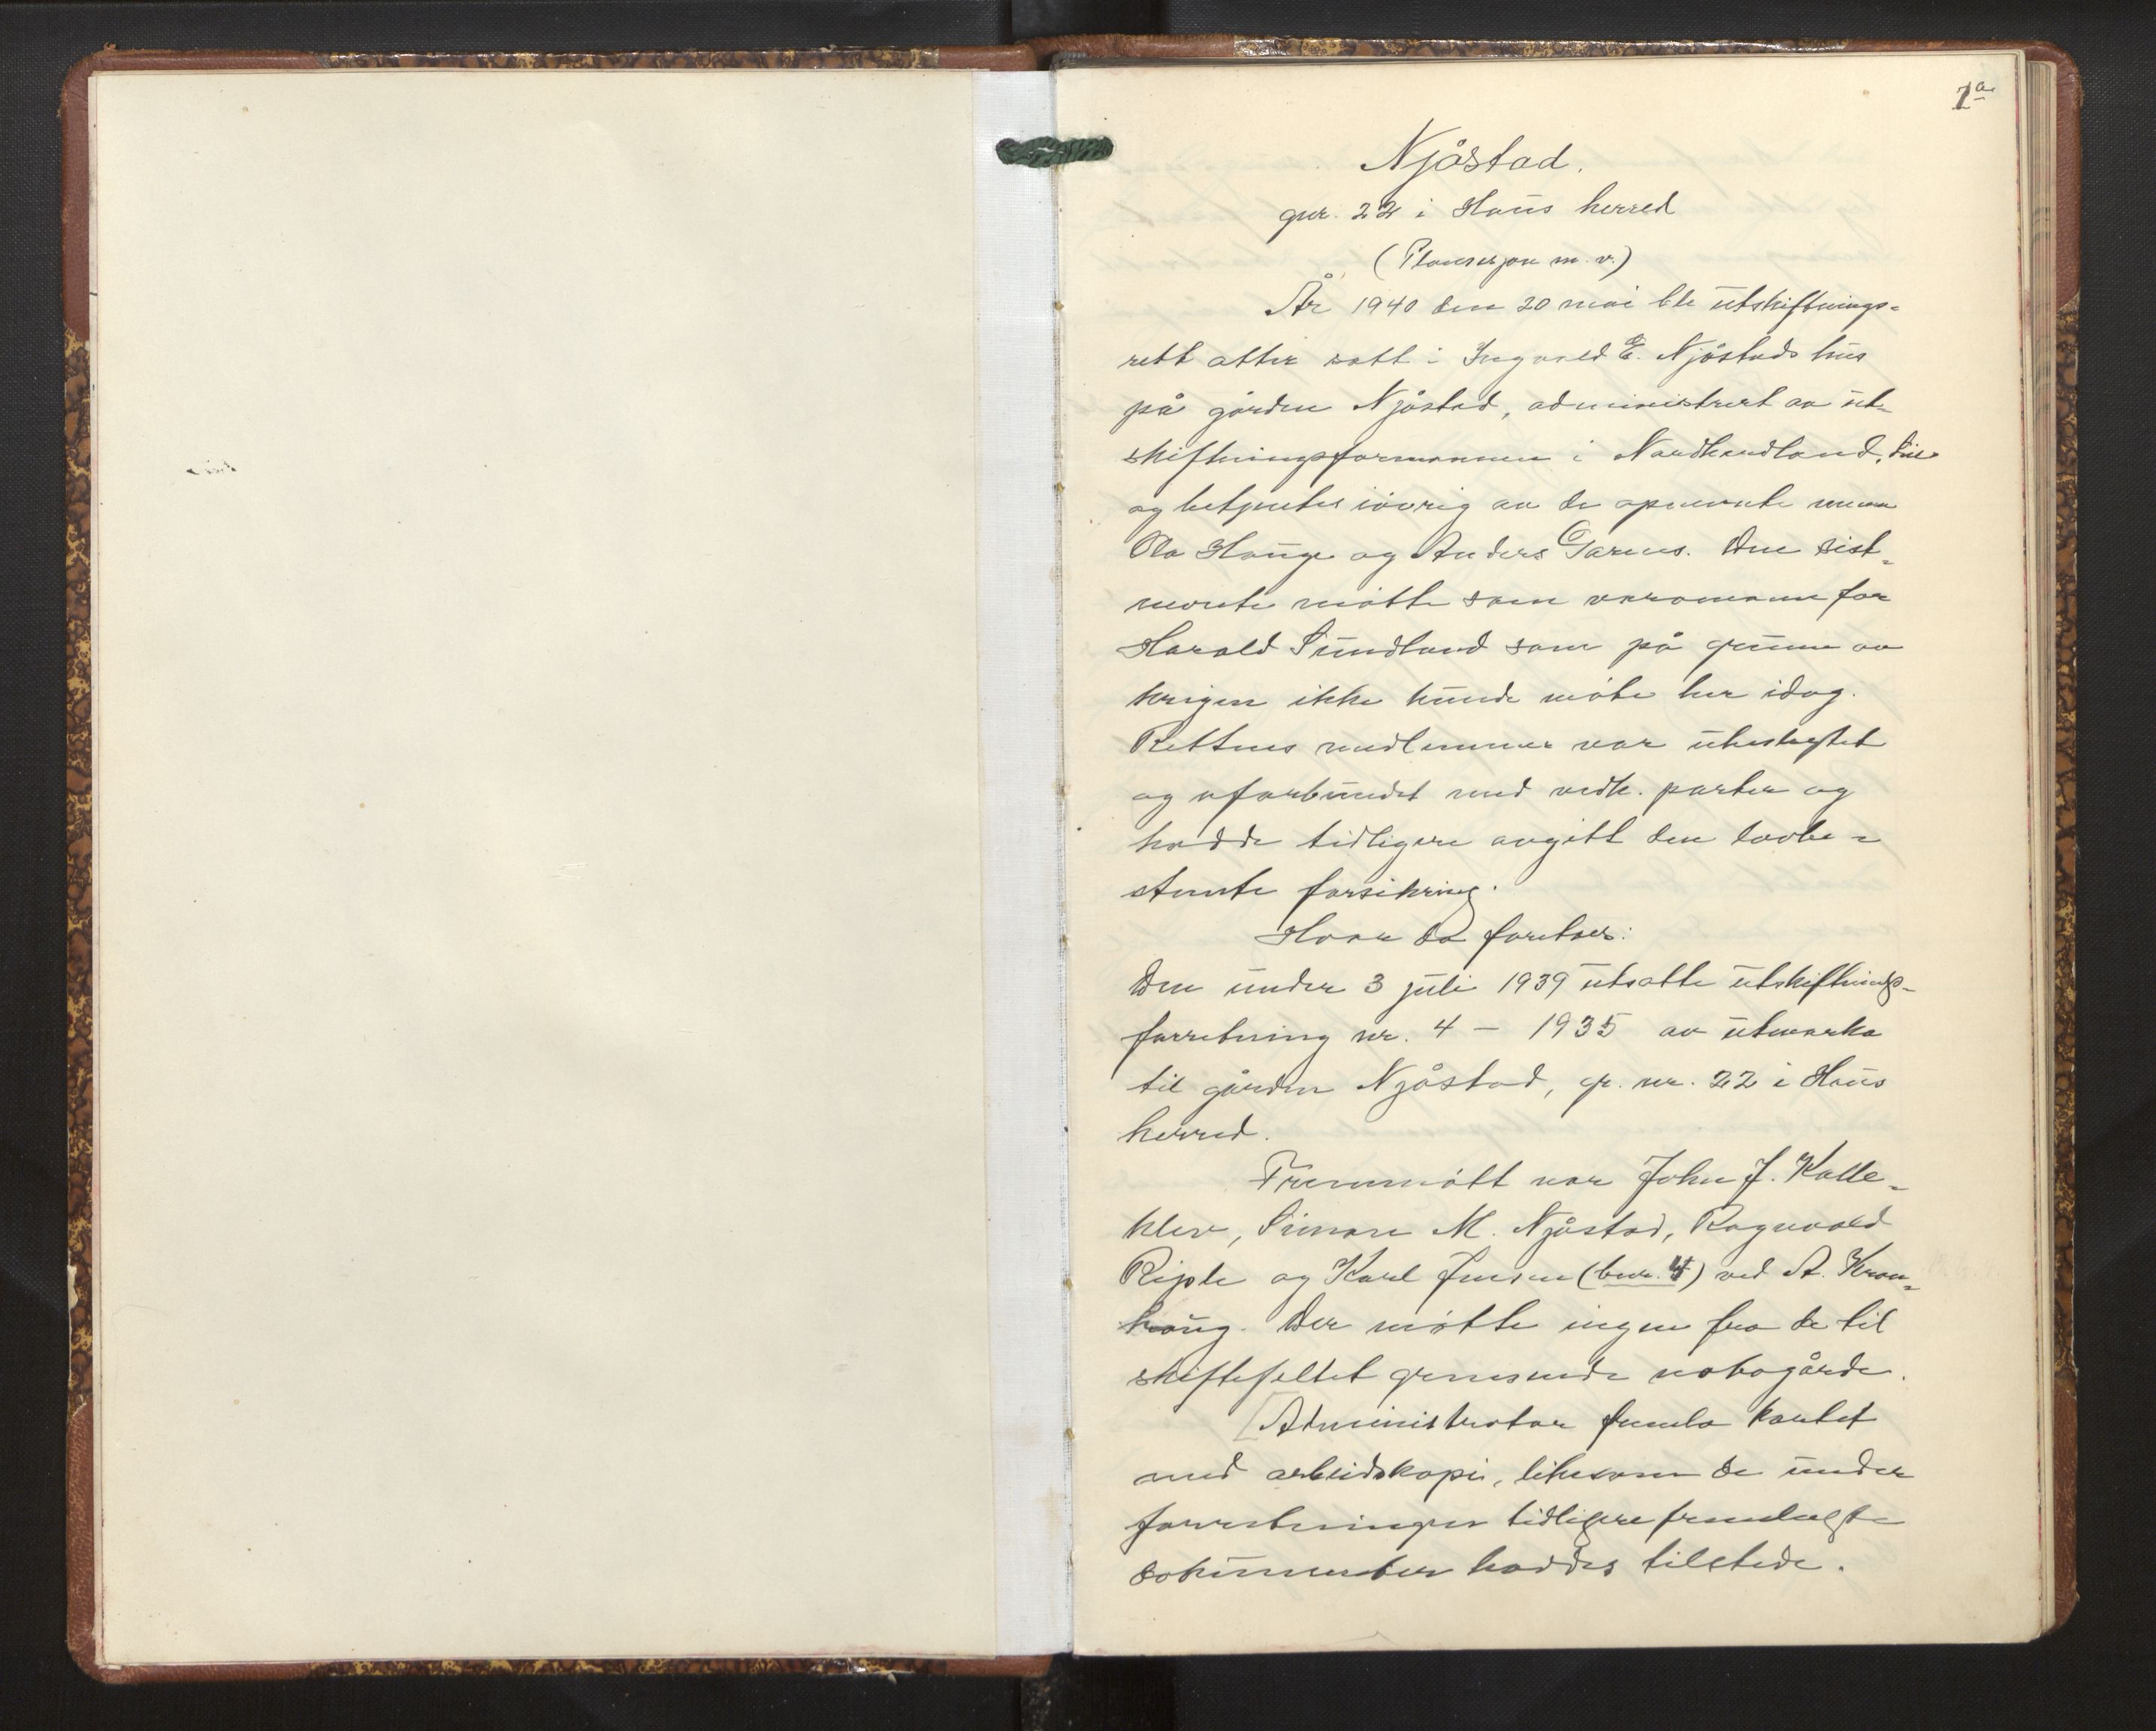 1a
Njåstad.
gnr. 22 i Haus herred
(Planskjon m. v.)
År 1940 den 20 mai ble utskiftnings-
rett atter satt i Ingvald E. Njåstads hus
på gården Njåstad, administrert av ut-
skiftningsformannen i Nordhordland,
og betjentes iøvrig av de opnevnte menn
Ola Hauge og Anders Garnes. Den sist-
nevnte møtte som varamann for
Harald Sundland som på grunn av
krigen ikke kunde møte her idag.
Rettens medlemmer var ubeslegtet
og uforbundet med vedk. parter og
hadde tidligere avgitt den lovbe-
stemte forsikring.
Hvor da foretoes:
Den under 3 juli 1939 utsatte utskiftnings-
forretning nr. 4 – 1935 av utmarka
til gården Njåstad, gr. nr. 22 i Haus
herred.
Fremmøtt var John J. Kalle-
klev, Simon M. Njåstad, Ragnvald
Riple og Karl Jensen (bnr. 4) ved A. Kron-
haug. Der møtte ingen fra de til
skiftefeltet grensende nabogårde.
[Administrator fremla kartet
med arbeidskopi, likesom de under
forretningen tidligere fremlagte
dokumenter haddes tilstede.